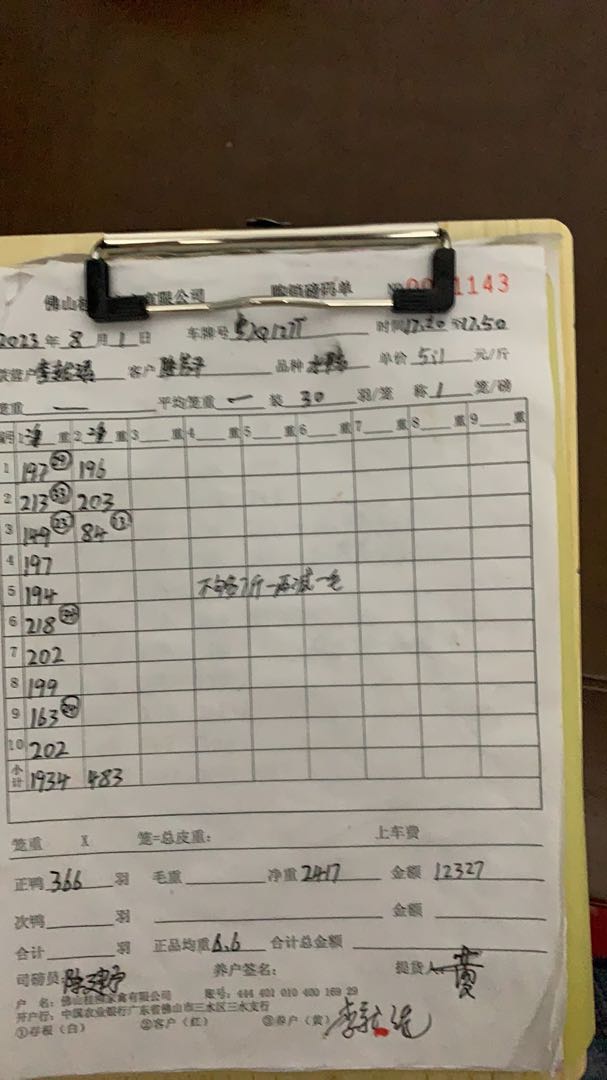 佛山 有限公司 购销磅码单 № 1143
2023 年 8 月 1 日 车牌号 时间 17.20 17.50
客户 品种 单价 5.1 元/斤
笼重 — 平均笼重 — 装 30 羽/笼 称 1 笼/磅
编号 1 净 重 2 净 重 3 重 4 重 5 重 6 重 7 重 8 重 9 重
1 197 29 196
2 213 33 203
3 149 23 84 13
4 197
5 194 不够7斤一两减一毛
6 218
7 202
8 199
9 163
10 202
小计 1934 483
笼重 X 笼=总皮重: 上车费
正鸭 366 羽 毛重 净重 2417 金额 12327
次鸭 羽 金额
合计 羽 正品均重 6.6 合计总金额
司磅员: 养户签名: 提货人 黄
户 名: 佛山桂柳家禽有限公司 账号: 444 401 010 400 169 29
开户行: 中国农业银行广东省佛山市三水区三水支行
①存根（白） ②客户（红） ③养户（黄）